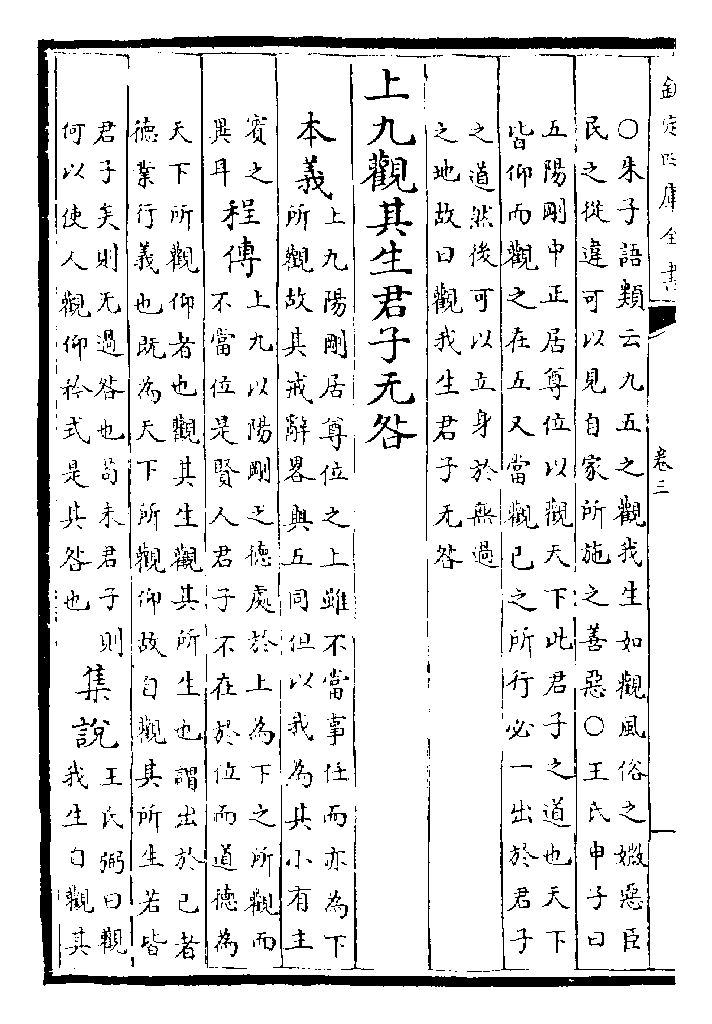 欽定四庫全書
卷三
○朱子語類云九五之觀我生如觀風俗之媺惡臣
民之從違可以見自家所施之善惡○王氏申子曰
五陽剛中正居尊位以觀天下此君子之道也天下
皆仰而觀之在五又當觀己之所行必一出於君子
之道然後可以立身於無過
之地故曰觀我生君子无咎
上九觀其生君子无咎
本義
上九陽剛居尊位之上雖不當事任而亦為下
所觀故其戒辭畧與五同但以我為其小有主
賓之
異耳
程傳
上九以陽剛之德處於上為下之所觀而
不當位是賢人君子不在於位而道德為
天下所觀仰者也觀其生觀其所生也謂出於己者
德業行義也既為天下所觀仰故自觀其所生若皆
君子矣則无過咎也苟未君子則
何以使人觀仰矜式是其咎也
集說
王氏弼曰觀
我生自觀其